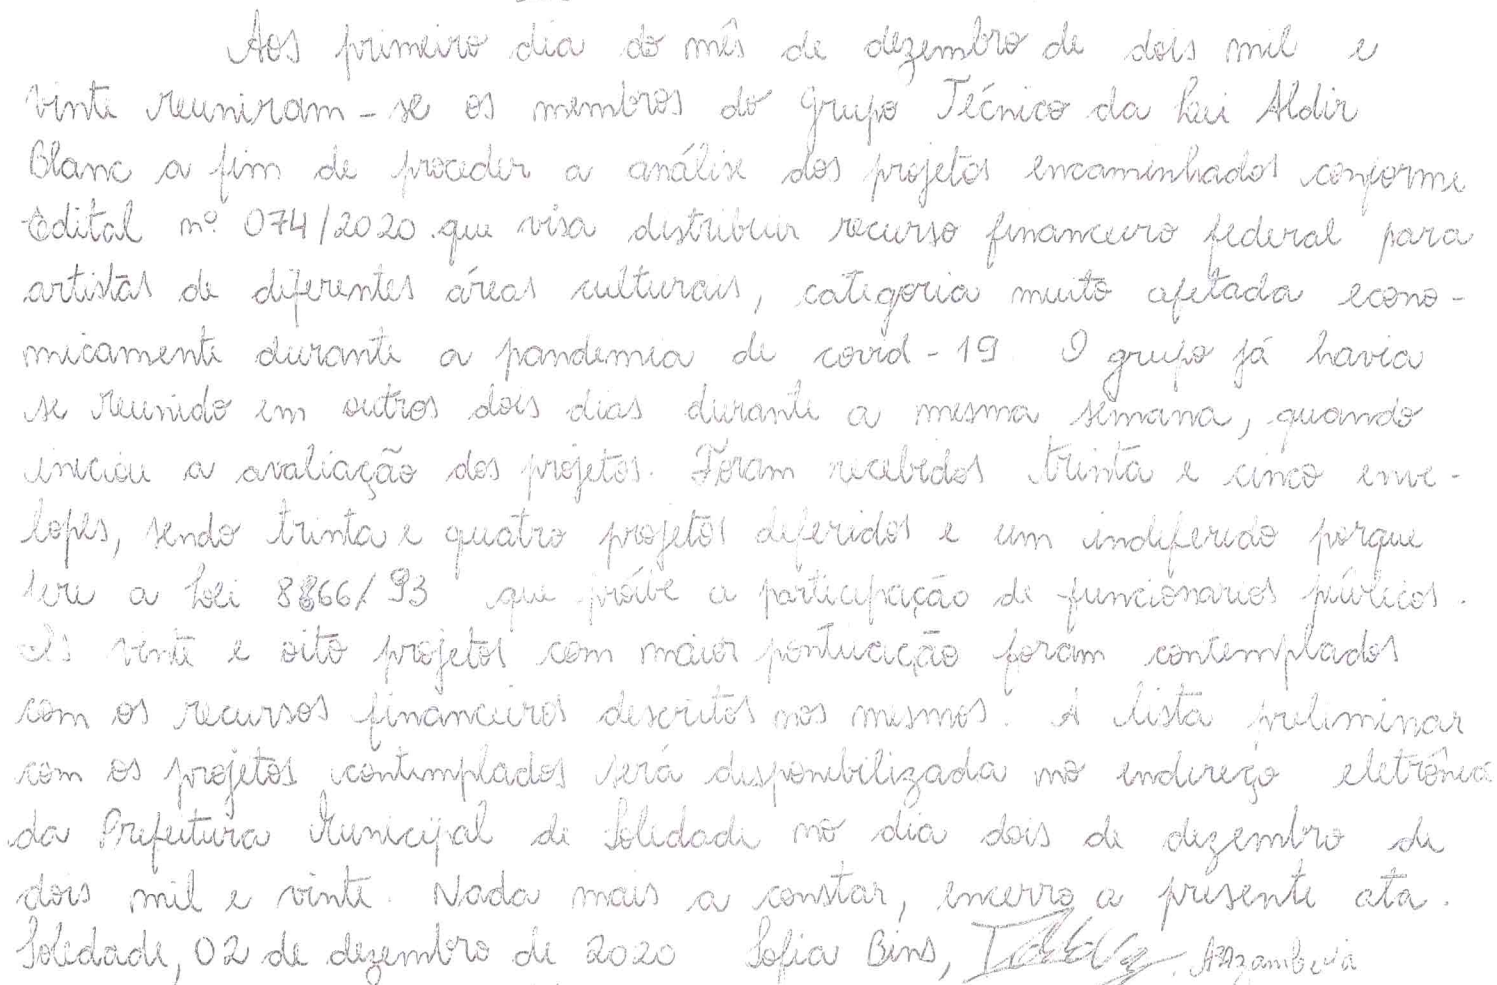 Aos primeiro dia do mês de dezembro de dois mil e
vinte reuniram-se os membros do Grupo Técnico da Lei Aldir
Blanc a fim de proceder a análise dos projetos encaminhados conforme
Edital nº 074/2020 que visa distribuir recurso financeiro federal para
artistas de diferentes áreas culturais, categoria muito afetada econo-
micamente durante a pandemia de covid-19. O grupo já havia
se reunido em outros dois dias durante a mesma semana, quando
iniciou a avaliação dos projetos. Foram recebidos trinta e cinco enve-
lopes, sendo trinta e quatro projetos deferidos e um indeferido porque
fere a Lei 8866/93 que proíbe a participação de funcionarios públicos.
Os vinte e oito projetos com maior pontuação foram contemplados
com os recursos financeiros descritos nos mesmos. A lista preliminar
com os projetos contemplados será disponibilizada no endereço eletrônico
da Prefeitura Municipal de Soledade no dia dois de dezembro de
dois mil e vinte. Nada mais a constar, encerro a presente ata.
Soledade, 02 de dezembro de 2020 Sofia Bins,